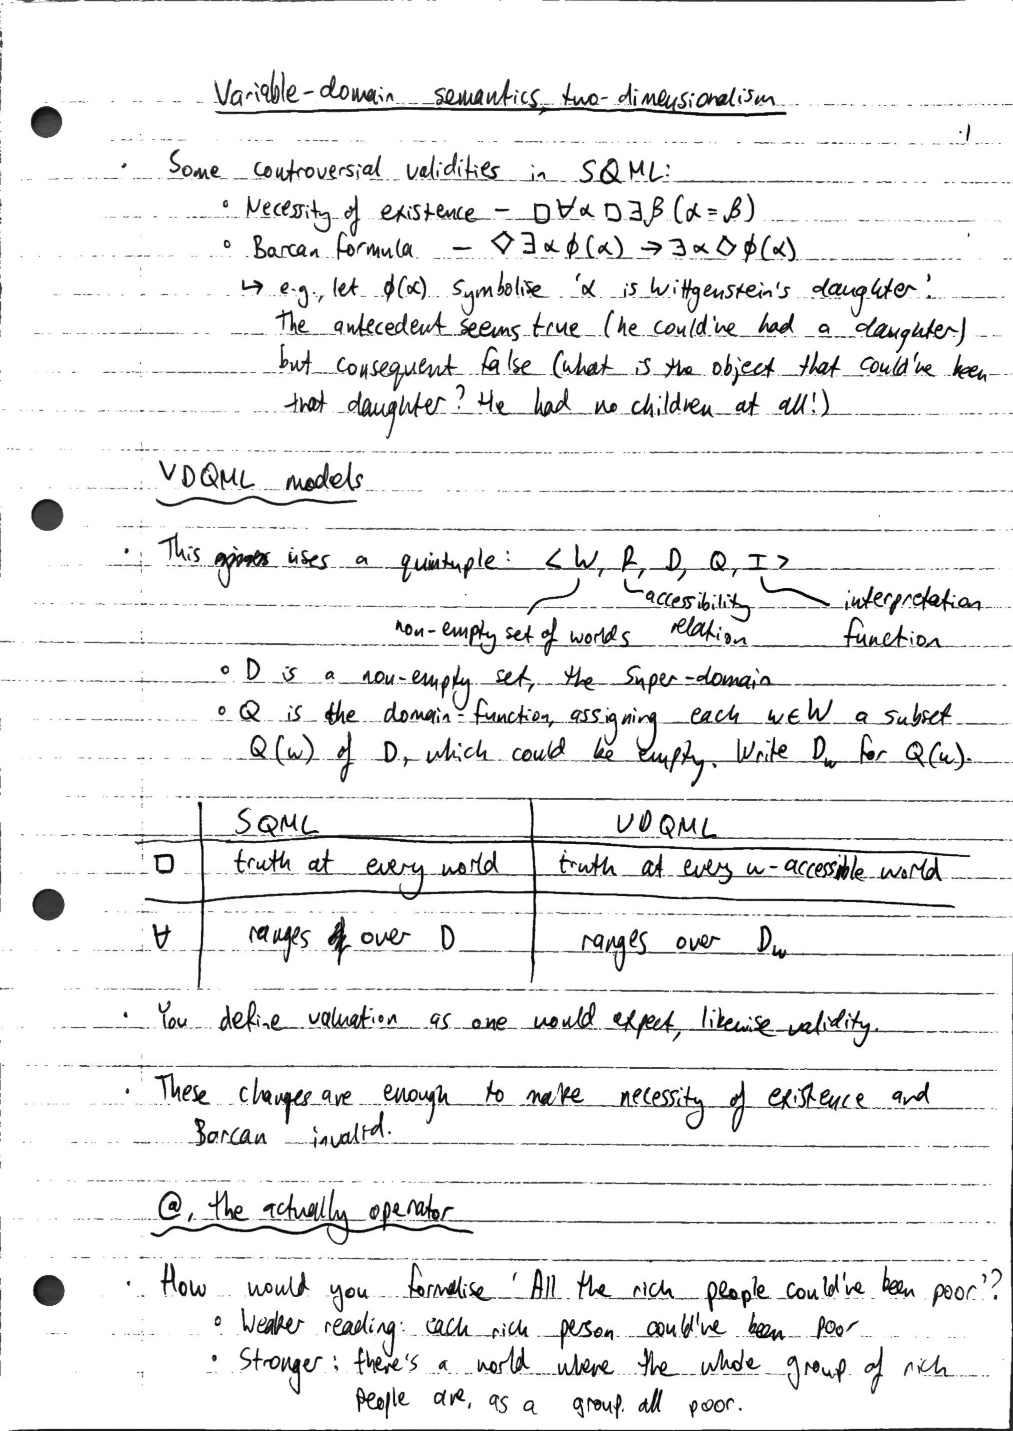 Variable-domain semantics, two-dimensionalism
.1
· Some controversial validities in SQML:
◦ Necessity of existence – □∀α□∃β(α=β)
◦ Barcan formula – ◇∃αϕ(α)→∃α◇ϕ(α)
↳ e.g., let ϕ(α) symbolise 'α is Wittgenstein's daughter'.
The antecedent seems true (he could've had a daughter)
but consequent false (what is the object that could've been
that daughter? He had no children at all!)
VDQML models
· This uses a quintuple: <W, R, D, Q, I>
accessibility interpretation
non-empty set of worlds relation function
◦ D is a non-empty set, the super-domain
◦ Q is the domain-function, assigning each w∈W a subset
Q(w) of D, which could be empty. Write D_w for Q(w).
SQML VDQML
□ truth at every world truth at every w-accessible world
∀ ranges over D ranges over D_w
· You define valuation as one would expect, likewise validity.
· These changes are enough to make necessity of existence and
Barcan invalid.
@, the actually operator
· How would you formalise 'All the rich people could've been poor'?
◦ Weaker reading: each rich person could've been poor
· Stronger: there's a world where the whole group of rich
people are, as a group, all poor.